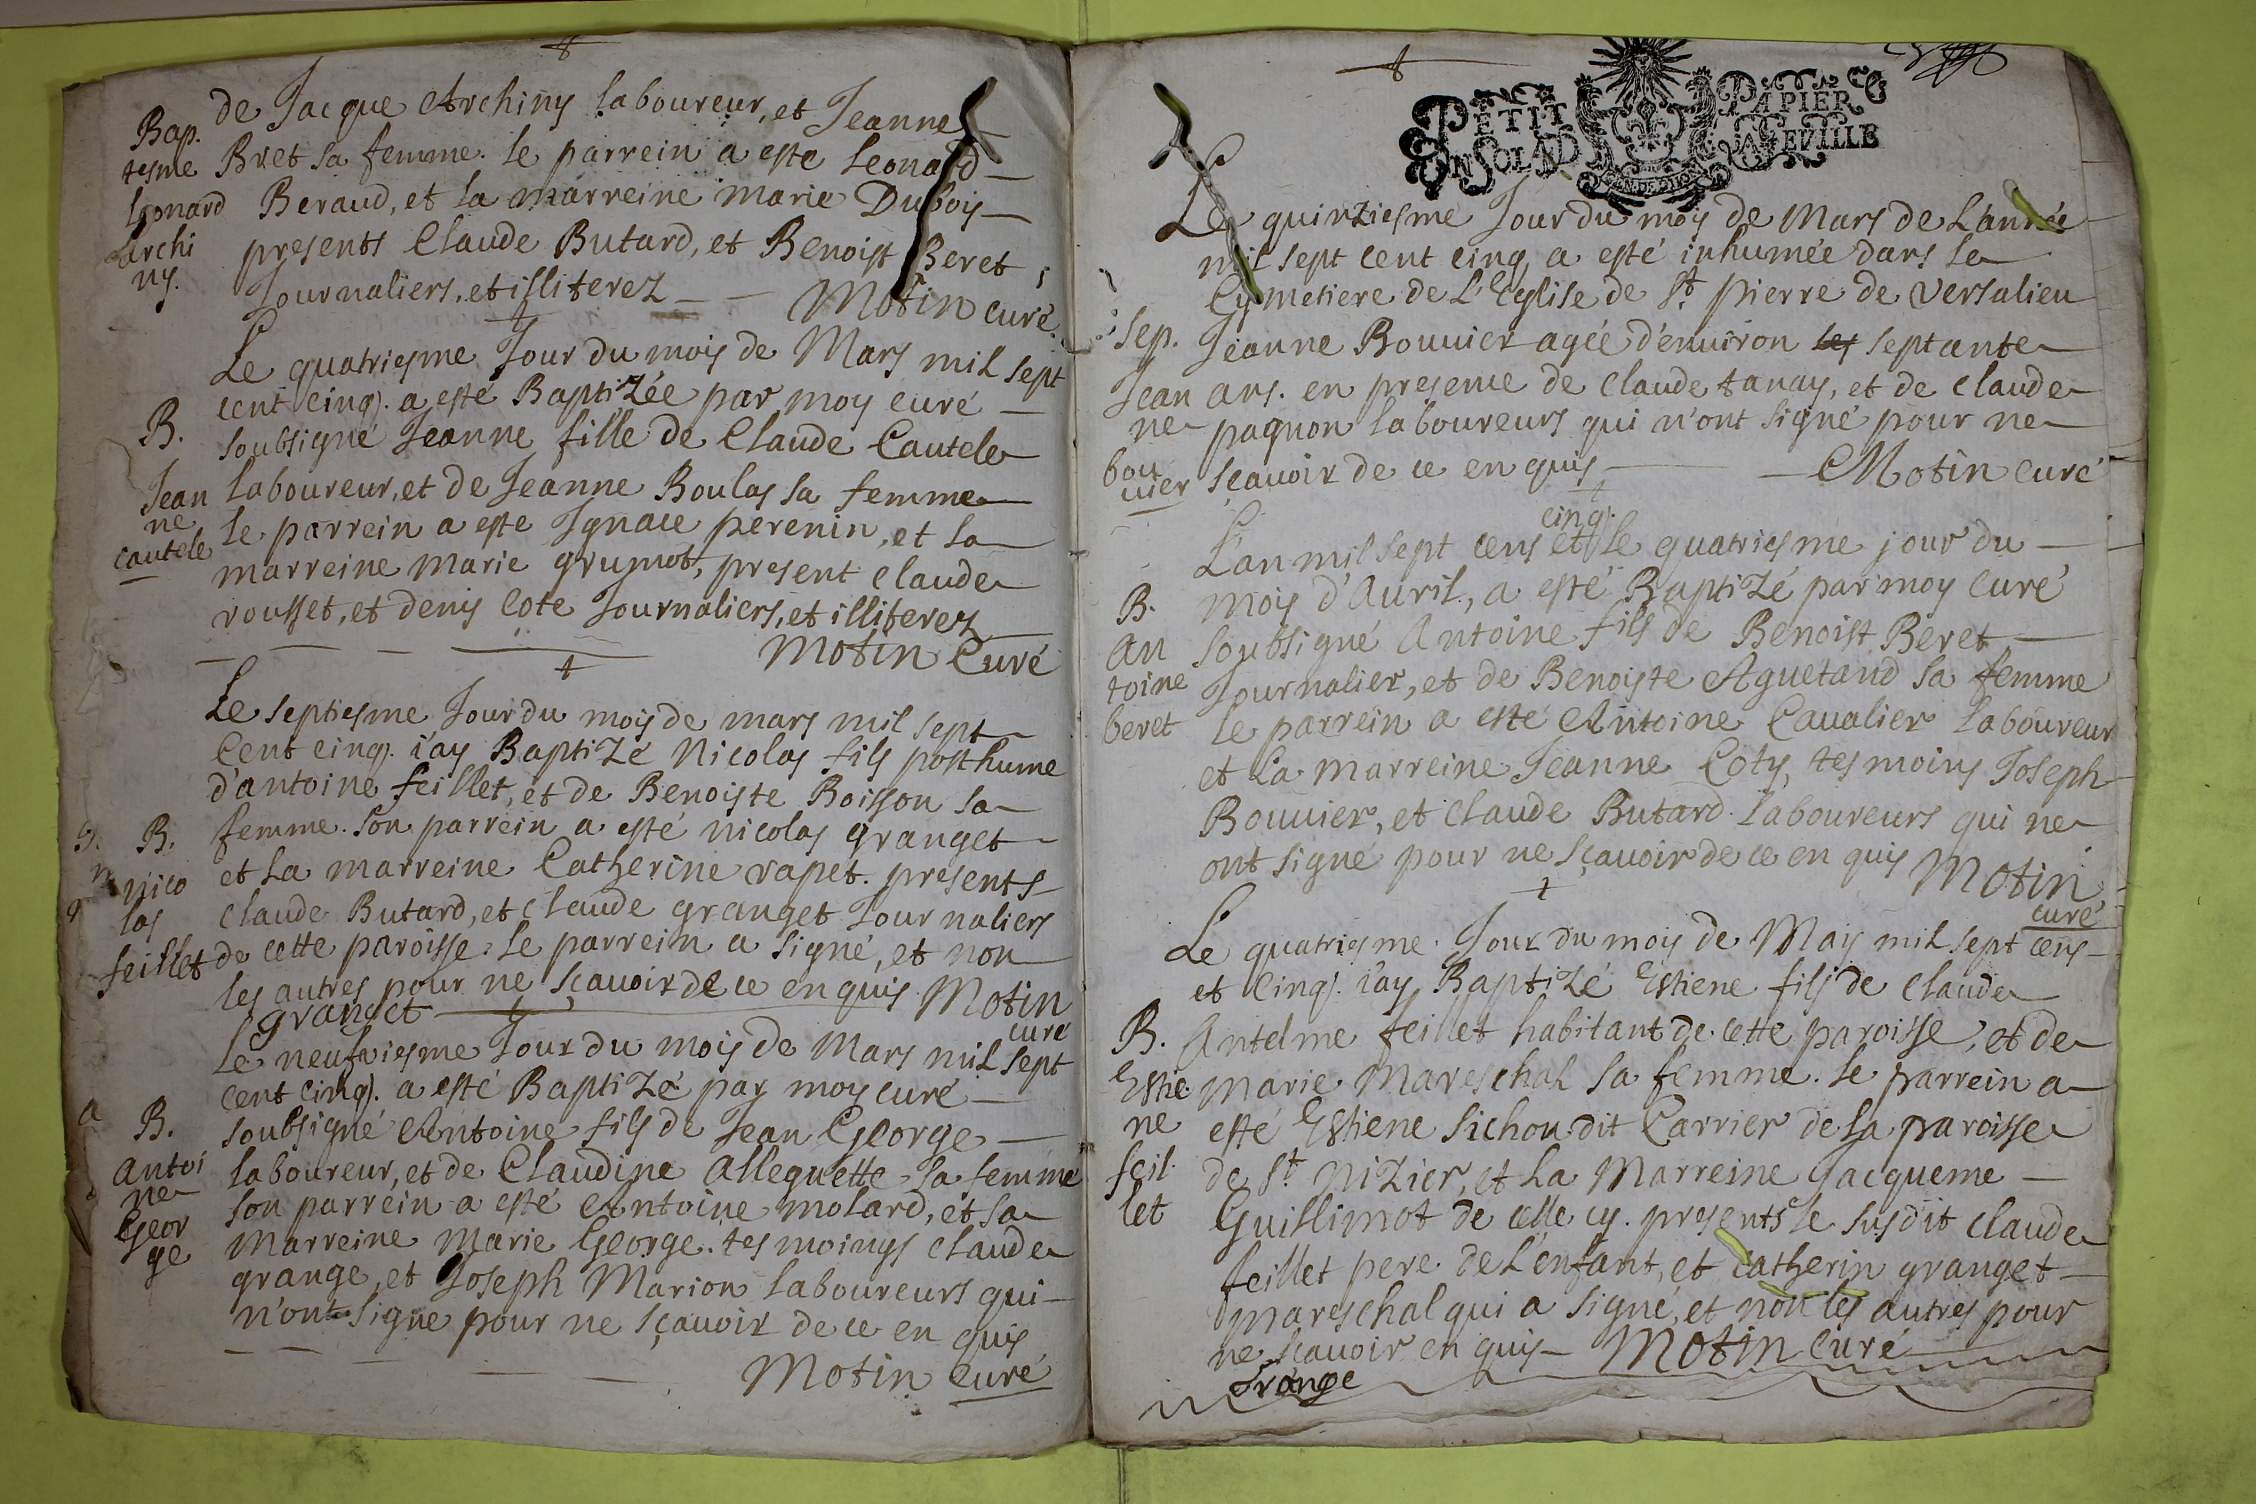 de Jacque Archiny laboureur, et Jeanne
Bap. Bret sa femme. le parrein a este Leonard
tesme Beraud, et la marreine marie Duboys
Leonard presents Claude Butard, et Benoist Beret
archi Journaliers, et illiterez
ny. Motin curé
Le quatriesme Jour du mois de Mars mil sept
cent cinq. a esté Baptizée par moy curé
B. soubsigné Jeanne fille de Claude Cautele
Jean laboureur, et de Jeanne Boulas sa femme
ne le parrein a este Ignace perenin, et la
cautele marreine marie grumot, present claude
rousset, et denis cote Journaliers, et illiterez
Motin Curé
Le septiesme Jour du mois de mars mil sept
Cent cinq. i'ay Baptizé Nicolas fils posthume
d'antoine feillet, et de Benoiste Boisson sa
B. femme. son parrein a esté nicolas granget
nico et la marreine Catherine rapet. presents
las claude Butard, et claude granget Journaliers
feillet de cette paroisse. le parrein a signé, et non
les autres pour ne sçauoir de ce enquis Motin
granget curé
Le neufuiesme Jour du mois de Mars mil sept
cent cinq. a esté Baptizé par moy curé
B. soubsigné Antoine fils de Jean George
antoi laboureur, et de Claudine Allequette sa femme
ne son parrein a esté Antoine molard, et sa
Geor Marreine Marie George. tesmoings claude
ge grange, et Joseph Marion laboureurs qui
n'ont signe pour ne sçauoir de ce en quis
Motin Curé
PETIT PAPIER
Le quinziesme Jour du moys de Mars de L'année
mil sept cent cinq, a esté inhumée dans le
Cymetiere de L'Eglise de St. pierre de versalieu
Sep. Jeanne Bouuier agée d'enuiron les septante
Jean ans. en presence de claude tanay, et de claude
ne paquon laboureurs qui n'ont signé pour ne
bou sçauoir de ce en quis Motin curé
uier
cinq.
L'an mil sept cens et le quatriesme jour du
B. mois d'Auril, a esté Baptizé par moy curé
an soubsigné Antoine fils de Benoist Beret
toine Journalier, et de Benoiste Aguetand sa femme
beret le parrein a esté Antoine Caualier laboureur
et la marreine Jeanne Coty, tesmoins Joseph
Bouuier, et claude Butard laboureurs qui ne
ont signé pour ne sçauoir de ce en quis Motin
curé
Le quatriesme Jour du mois de May mil sept cens
et cinq. i'ay Baptizé Estiene fils de claude
B. Antelme feillet habitant de cette paroisse, et de
Estie marie Mareschal sa femme. le parrein a
ne esté Estiene Sichon dit Carrier de la paroisse
feil de St. Nizier, et la Marreine Jacqueme
let Guillimot de celle cy. presents le susdit claude
feillet pere de L'enfant, et catherin granget
mareschal qui a signé, et non les autres pour
ne sçauoir en quis Motin curé